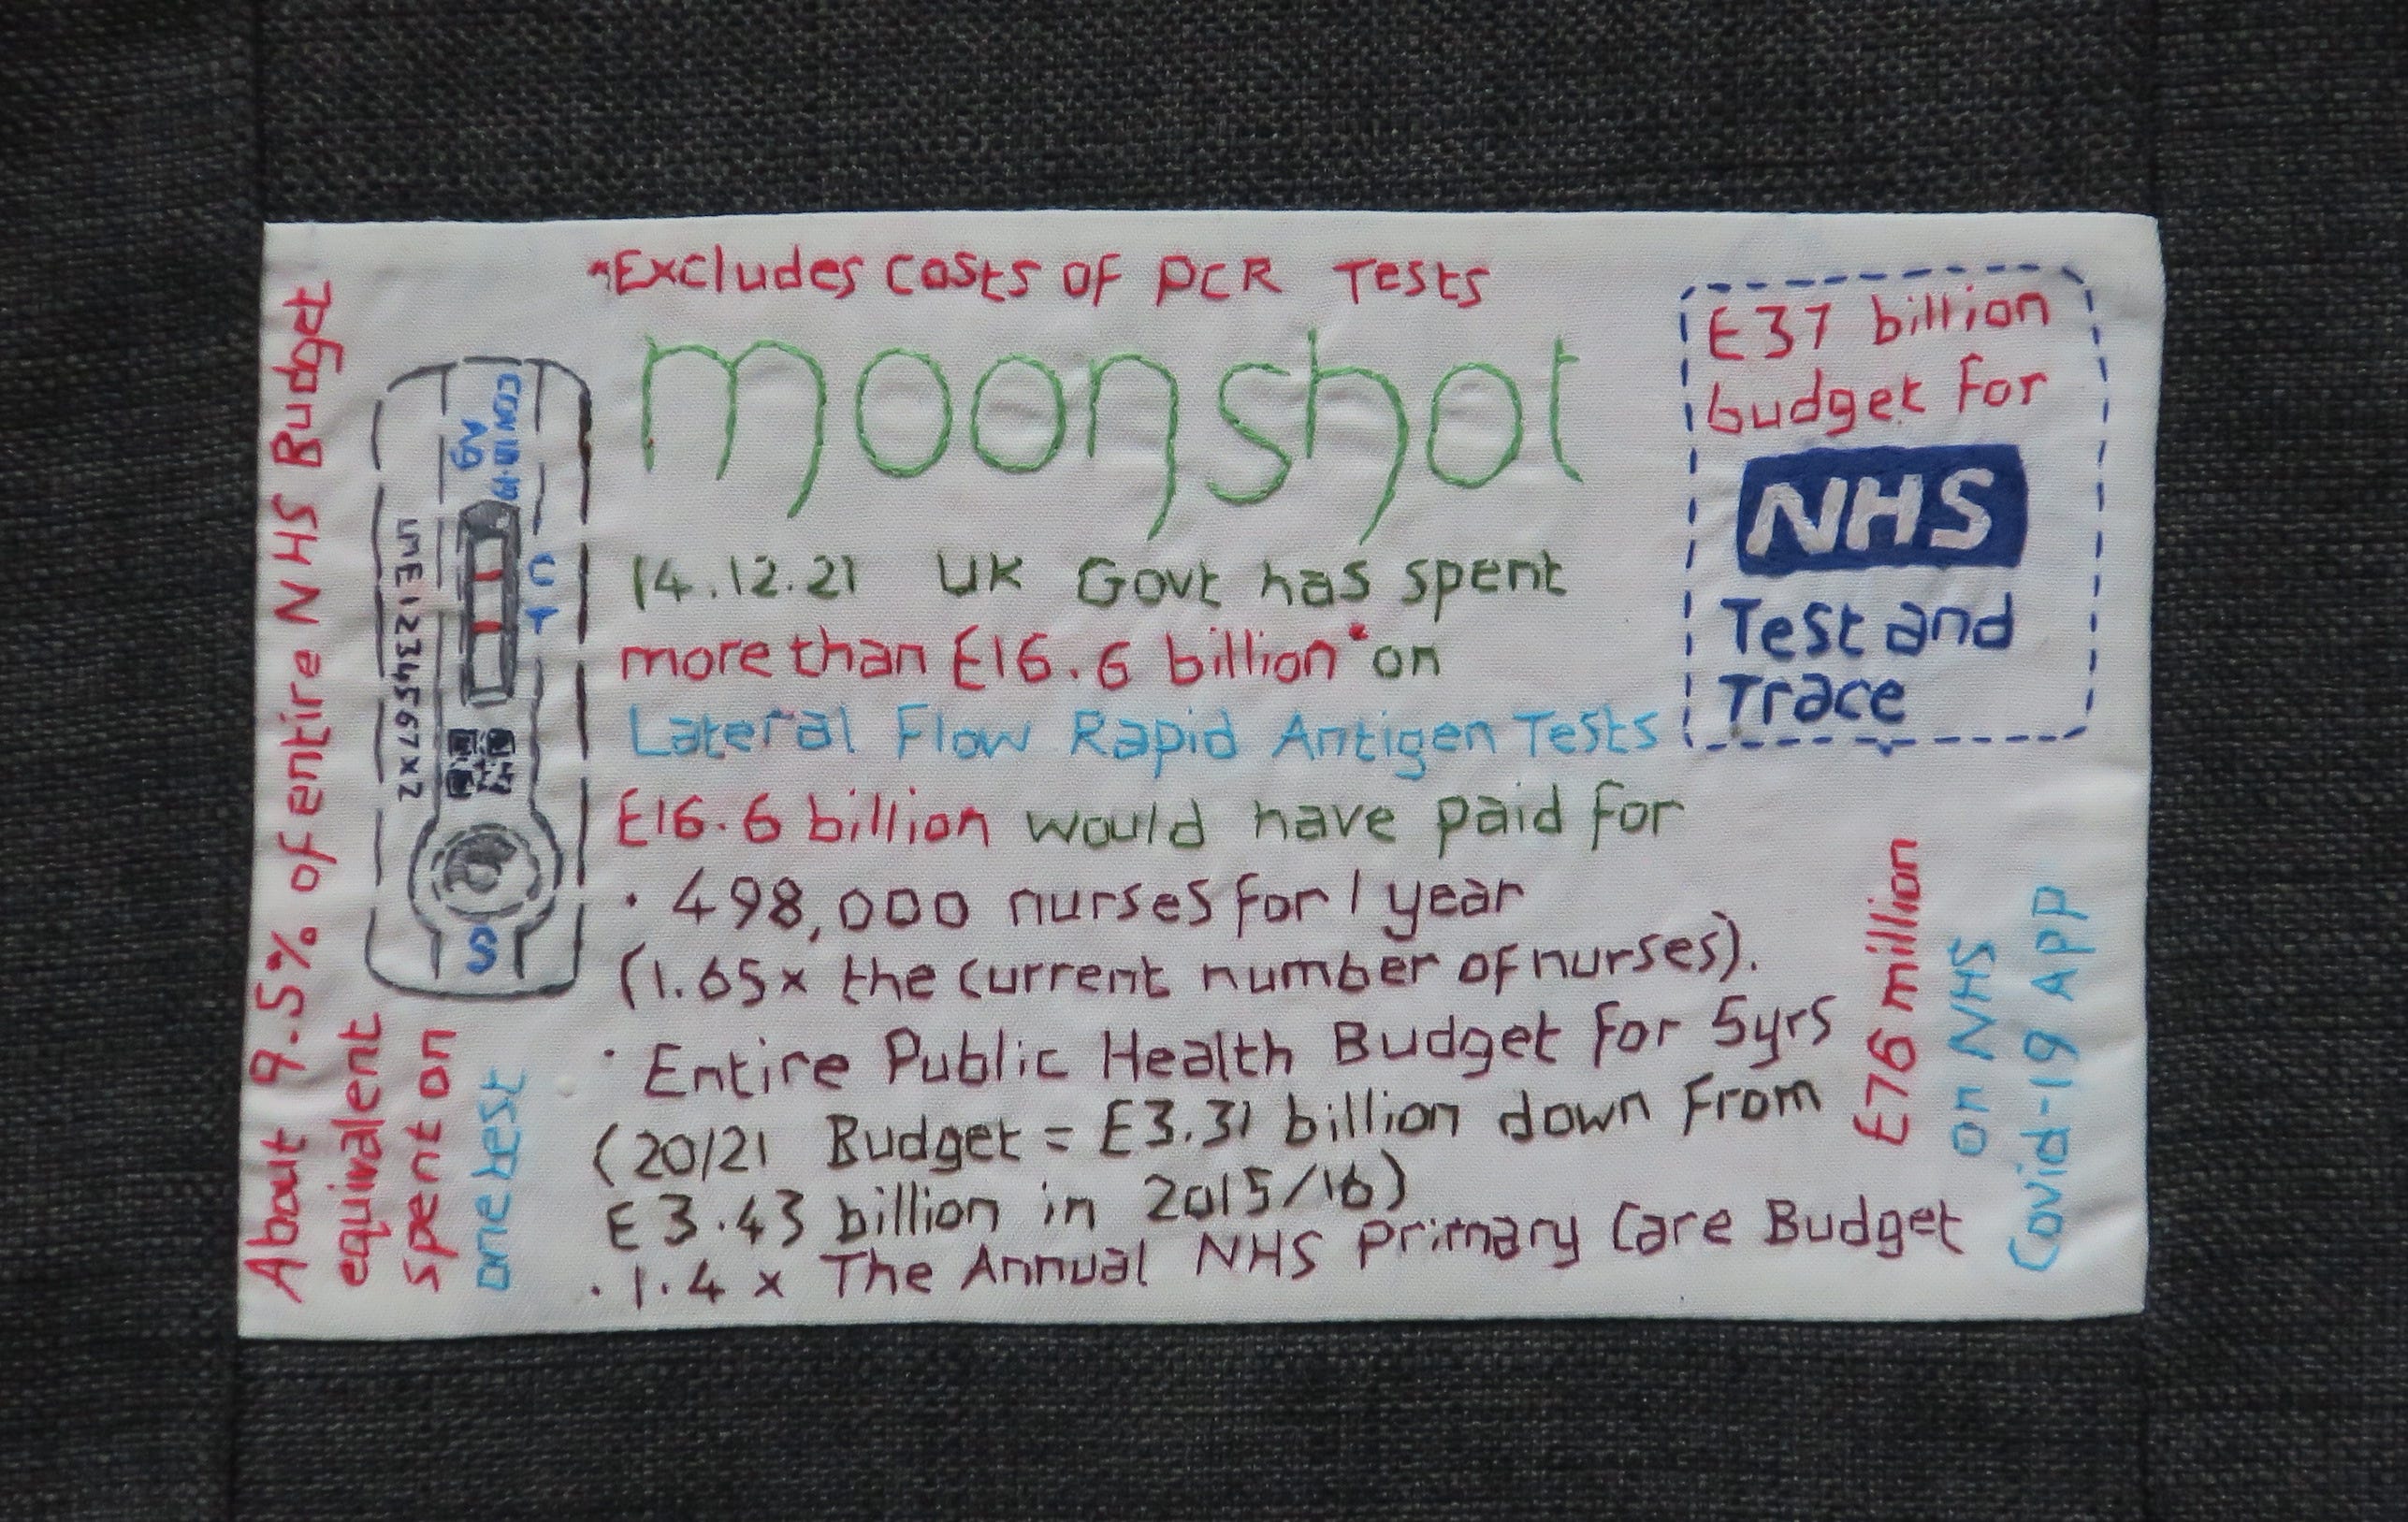 *Excludes costs of PCR Tests
moonshot
14.12.21 UK Govt has spent
more than £16.6 billion* on
Lateral Flow Rapid Antigen Tests
£16.6 billion would have paid for
• 498,000 nurses for 1 year
(1.65x the current number of nurses).
• Entire Public Health Budget for 5yrs
(20/21 Budget = £3.31 billion down from
£3.43 billion in 2015/16)
• 1.4 x The Annual NHS Primary Care Budget
£37 billion
budget for
NHS
Test and
Trace
£76 million
on NHS
Covid-19 App
About 9.5% of entire NHS Budget
equivalent
spent on
one test
COVID-19
Ag
C
T
UME1234567XZ
S